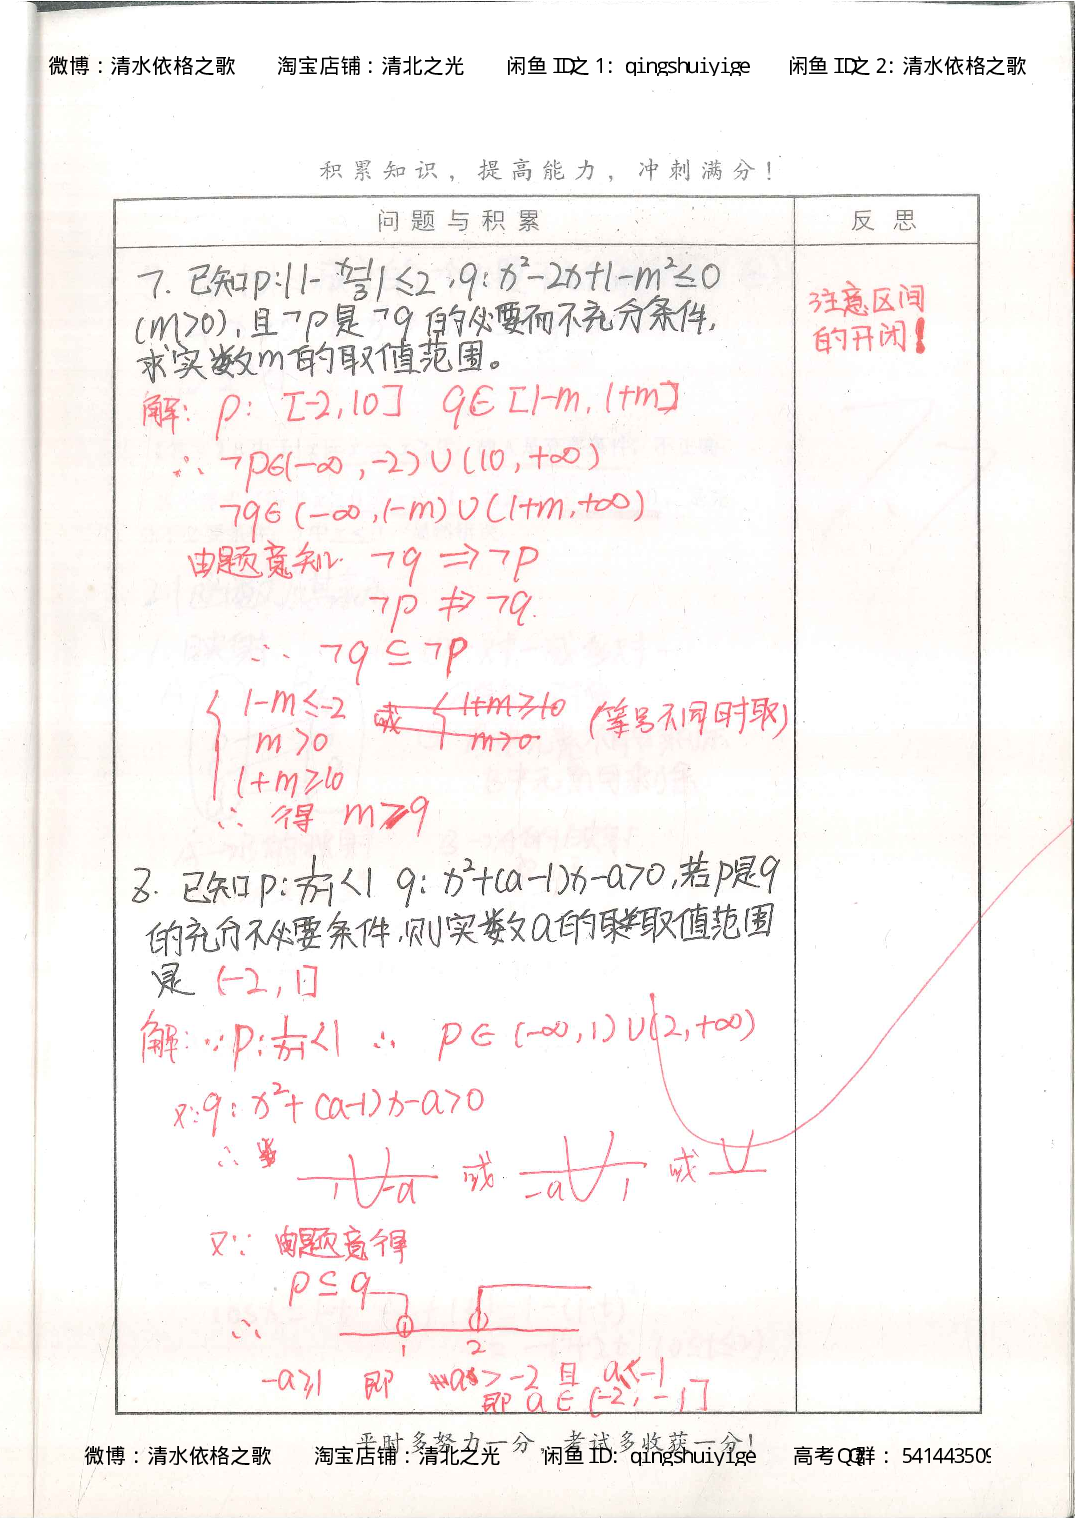 微博：清水依格之歌 淘宝店铺：清北之光 闲鱼ID之1：qingshuiyige 闲鱼ID之2：清水依格之歌
积累知识，提高能力，冲刺满分！
问题与积累 反思
7. 已知p:|1-(x-1)/3|≤2，q:x²-2x+1-m²≤0
(m>0)，且¬p是¬q的必要而不充分条件，
求实数m的取值范围。
注意区间
的开闭！
解：p：[-2,10] q∈[1-m,1+m]
∴¬p∈(-∞,-2)∪(10,+∞)
¬q∈(-∞,1-m)∪(1+m,+∞)
由题意知 ¬q⇒¬p
¬p⇏¬q
∴ ¬q⊆¬p
{1-m≤-2 或 {1+m≥10 (等号不同时取)
m>0 m>0
1+m≥10
∴得 m≥9
8. 已知p:1/(x-1)<1 q:x²+(a-1)x-a>0，若p是q
的充分不必要条件，则实数a的取值范围
是 (-2,1]
解：∵p:1/(x-1)<1 ∴ p∈(-∞,1)∪(2,+∞)
又∵q:x²+(a-1)x-a>0
∴ 1 -a 或 -a 1 或
又∵ 由题意得
p⊆q
∴ 1 2
-a≥1 即 a>-2 且 a≤-1
即 a∈(-2,-1]
平时多努力一分，考试多收获一分！
微博：清水依格之歌 淘宝店铺：清北之光 闲鱼ID：qingshuiyige 高考QQ群：541443509